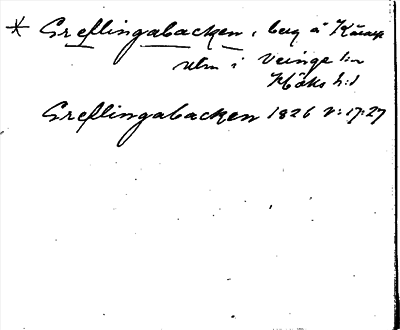 * Greflingabacken, berg å Kåarp
utm i Veinge s:n
Höks h:d
Greflingabacken 1826 V:17:27